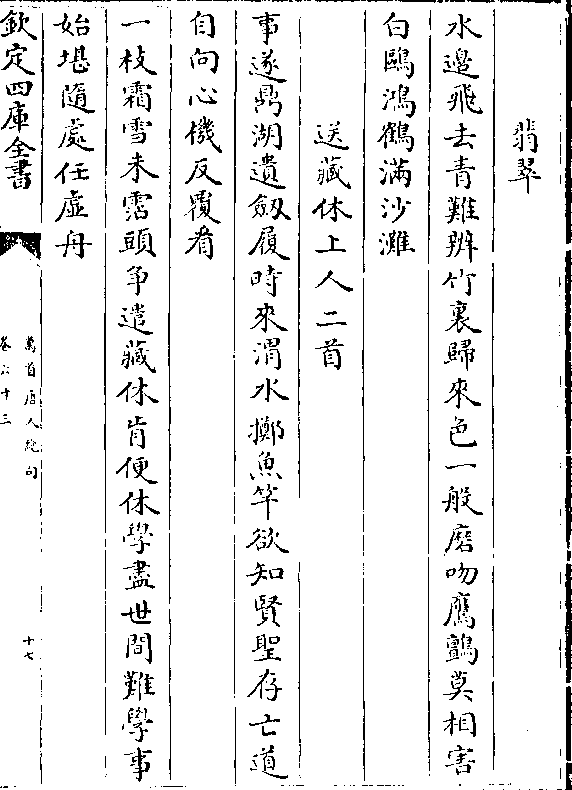 翡翠
水邉飛去青難辨竹裏歸來色一般磨吻鷹鸇莫相害
白鷗鴻鶴滿沙灘
送藏休上人二首
事遂鼎湖遺劔履時來渭水擲魚竿欲知賢聖存亡道
自向心機反覆看
一枝霜雪未霑頭爭遣藏休肯便休學盡世間難學事
始堪隨處任虚舟
欽定四庫全書
萬首唐人絶句
卷六十三
十七